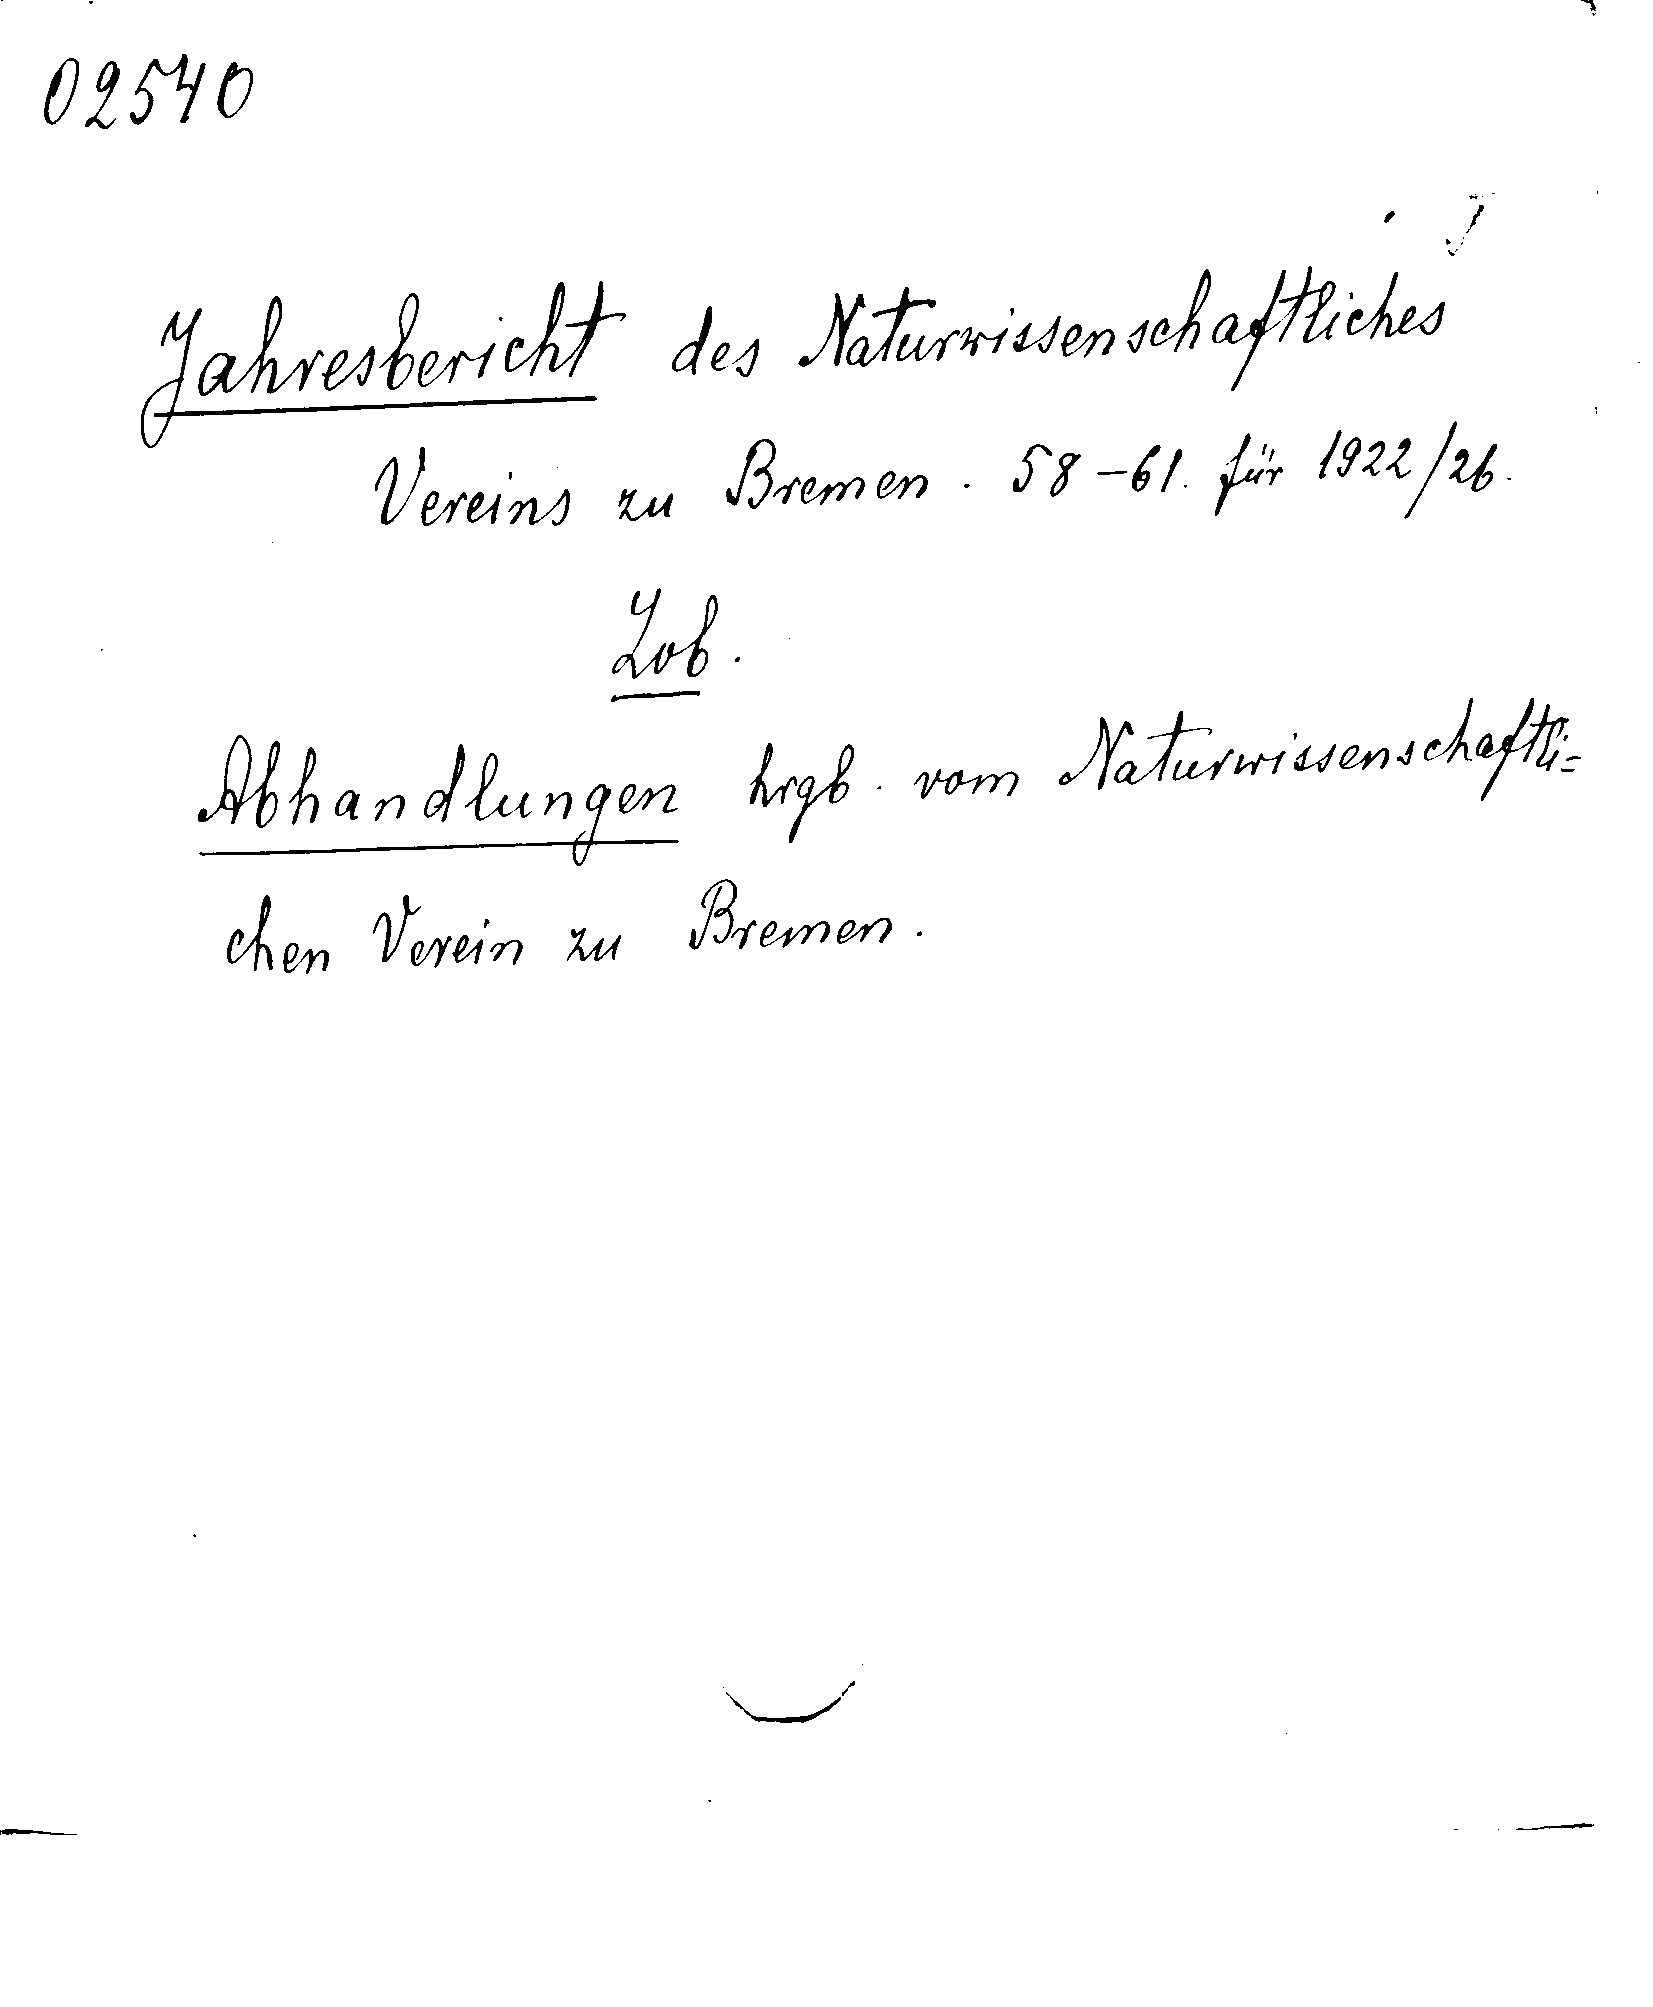 02540
Jahresbericht des Naturwissenschaftliches
Vereins zu Bremen. 58-61. für 1922/26.
Zob.
Abhandlungen hrgb. vom Naturwissenschaftli=
chen Verein zu Bremen.